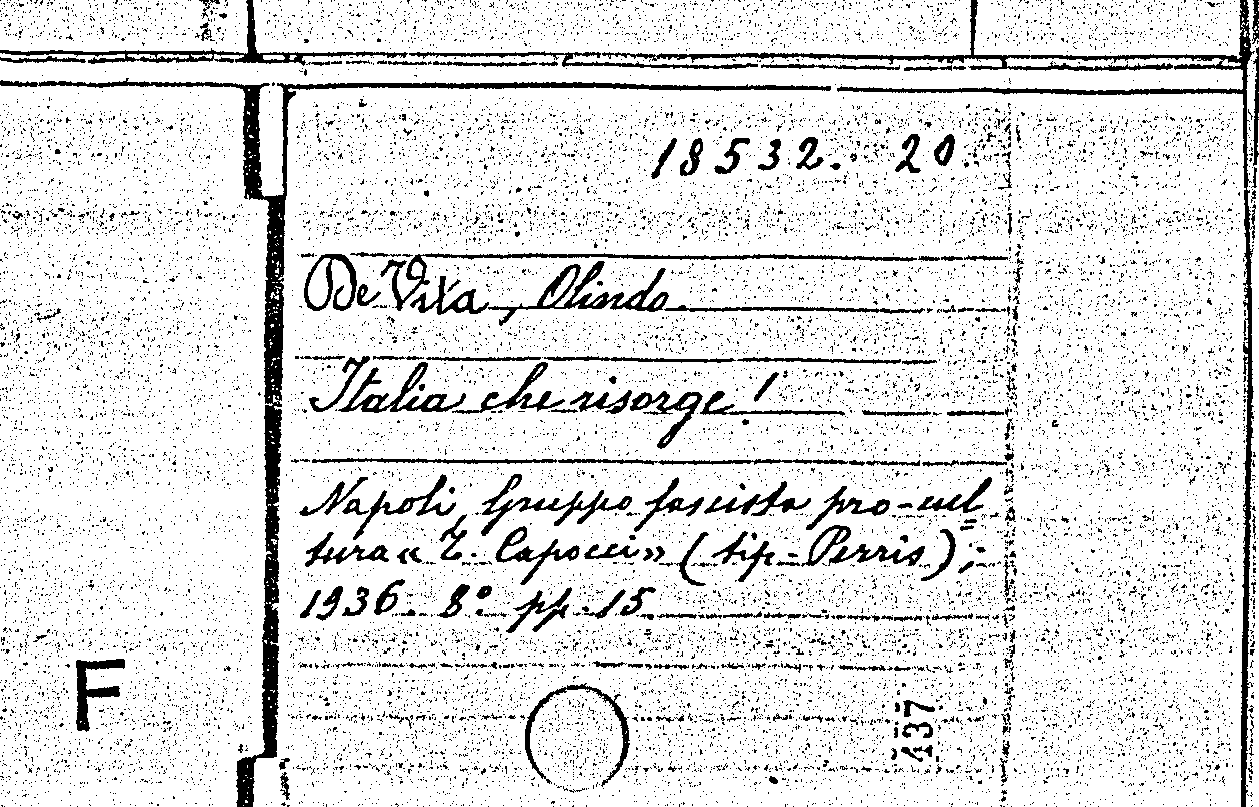 18532. 20.
De Vita, Olindo.
Italia che risorge!
Napoli, Gruppo fascista pro-cul=
tura « T. Capocci» (tip. Perris),
1936. 8° pp. 15
F
437